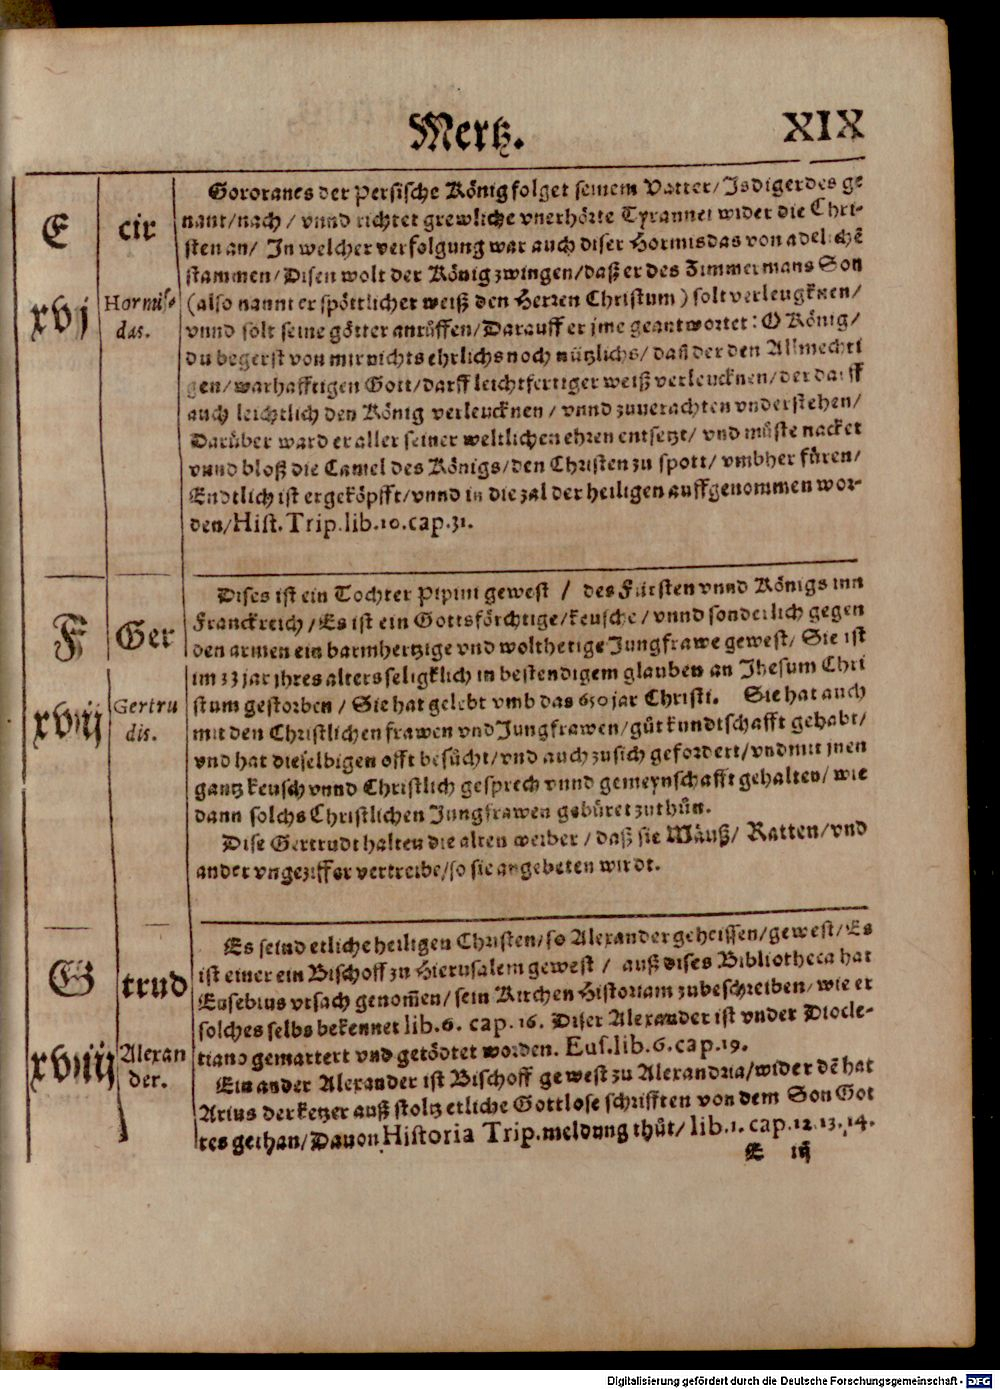 Mertz. XIX
E
cir
xvj
Hormis-
das.
Gororanes der Persische König folget seinem Vatter/Isdigerdes ge
nant/nach/vnnd richtet grewliche vnerhörte Tyrannei wider die Chri-
sten an/ In welcher verfolgung war auch diser Hormisdas von adelichē
stammen/Disen wolt der König zwingen/daß er des Zimmermans Son
(also nannt er spöttlicher weiß den Herren Christum) solt verleugknen/
vnnd solt seine götter anrůffen/Darauff er jme geantwortet: O König/
du begerst von mir nichts ehrlichs noch nützlichs/dañ der den Allmechti
gen/warhafftigen Gott/darff leichtfertiger weiß verleucknen/der darff
auch leichtlich den König verleucknen/vnnd zuuerachten vnderstehen/
Darüber ward er aller seiner weltlichen ehren entsetzt/vnd můste nacket
vnnd bloß die Camel des Königs/den Christen zu spott/vmbher füren/
Endtlich ist er geköpfft/vnnd in die zal der heiligen auffgenommen wor-
den/Hist. Trip.lib.10.cap.31.
F
Ger
xvij
Gertru
dis.
Dises ist ein Tochter Pipini gewest / des Fürsten vnnd Königs inn
Franckreich/Es ist ein Gottsförchtige/keusche/vnnd sonderlich gegen
den armen ein barmhertzige vnd wolthetige Jungfrawe gewest/Sie ist
im 33 jar jhres alters seligklich in bestendigem glauben an Jhesum Chri
stum gestorben/Sie hat gelebt vmb das 650 jar Christi. Sie hat auch
mit den Christlichen frawen vnd Jungfrawen/gůt kundtschafft gehabt/
vnd hat dieselbigen offt besůcht/vnd auch zu sich gefordert/vnd mit jnen
gantz keusch vnnd Christlich gesprech vnnd gemeynschafft gehalten/wie
dann solchs Christlichen Jungfrawen gebüret zuthůn.
Dise Gertrudt halten die alten weiber/daß sie Mäuß/Ratten/vnd
ander vngeziffer vertreibe/so sie angebeten wirdt.
G
trud
xviij
Alexan
der.
Es seind etliche heiligen Christen/so Alexander geheissen/gewest/Es
ist einer ein Bischoff zu Hierusalem gewest / auß dises Bibliotheca hat
Eusebius vrsach genom̄en/sein Kirchen Historiam zubeschreiben/wie er
solches selbs bekennet lib.6. cap.16. Diser Alexander ist vnder Diocle-
tiano gemartert vnd getödtet worden. Eus.lib.6.cap.19.
Ein ander Alexander ist Bischoff gewest zu Alexandria/wider dē hat
Arius der ketzer auß stoltz etliche Gottlose schrifften von dem Son Got
tes gethan/Dauon Historia Trip.meldung thůt/lib.1.cap.12.13.14.
E iij
Digitalisierung gefördert durch die Deutsche Forschungsgemeinschaft - DFG